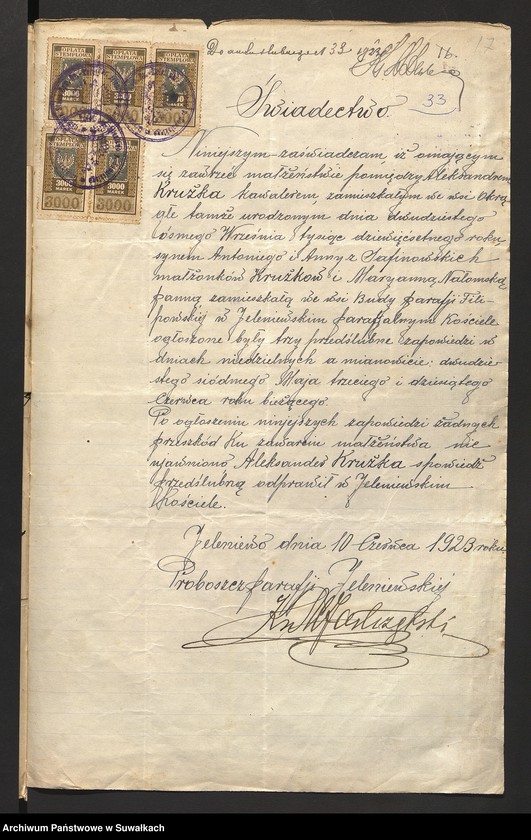 Do aktu ślubnego N 33 1923 r.
17
33
Świadectwo.
OPŁATA STEMPLOWA OPŁATA STEMPLOWA OPŁATA STEMPLOWA
3000 MAREK
3000 3000
Niniejszym zaświadczam, iż mającym
się zawrzeć małżeństwie pomiędzy Aleksandrem
Krużka kawalerem, zamieszkałym we wsi Okrą
głe tamże urodzonym dnia dwudziestego
ósmego Września tysiąc dziewięćsetnego roku
synem Antoniego i Anny z Safinowskich
małżonków Krużków i Maryanną Natomską
panną zamieszkałą we wsi Budy parafji Fili-
powskiej w Jeleniewskim parafjalnym Kościele
ogłoszone były trzy przedślubne zapowiedzi w
dniach niedzielnych a mianowicie: dwudzie-
stego siódmego Maja trzeciego i dziesiątego
Czerwca roku bieżącego.
Po ogłoszeniu niniejszych zapowiedzi żadnych
przeszkód ku zawarciu małżeństwa nie
ujawniono Aleksander Krużka spowiedź
przedślubną odprawił w Jeleniewskim
Kościele.
Jeleniewo dnia 10 Czerwca 1923 roku
Proboszcz parafji Jeleniewskiej
Archiwum Państwowe w Suwałkach